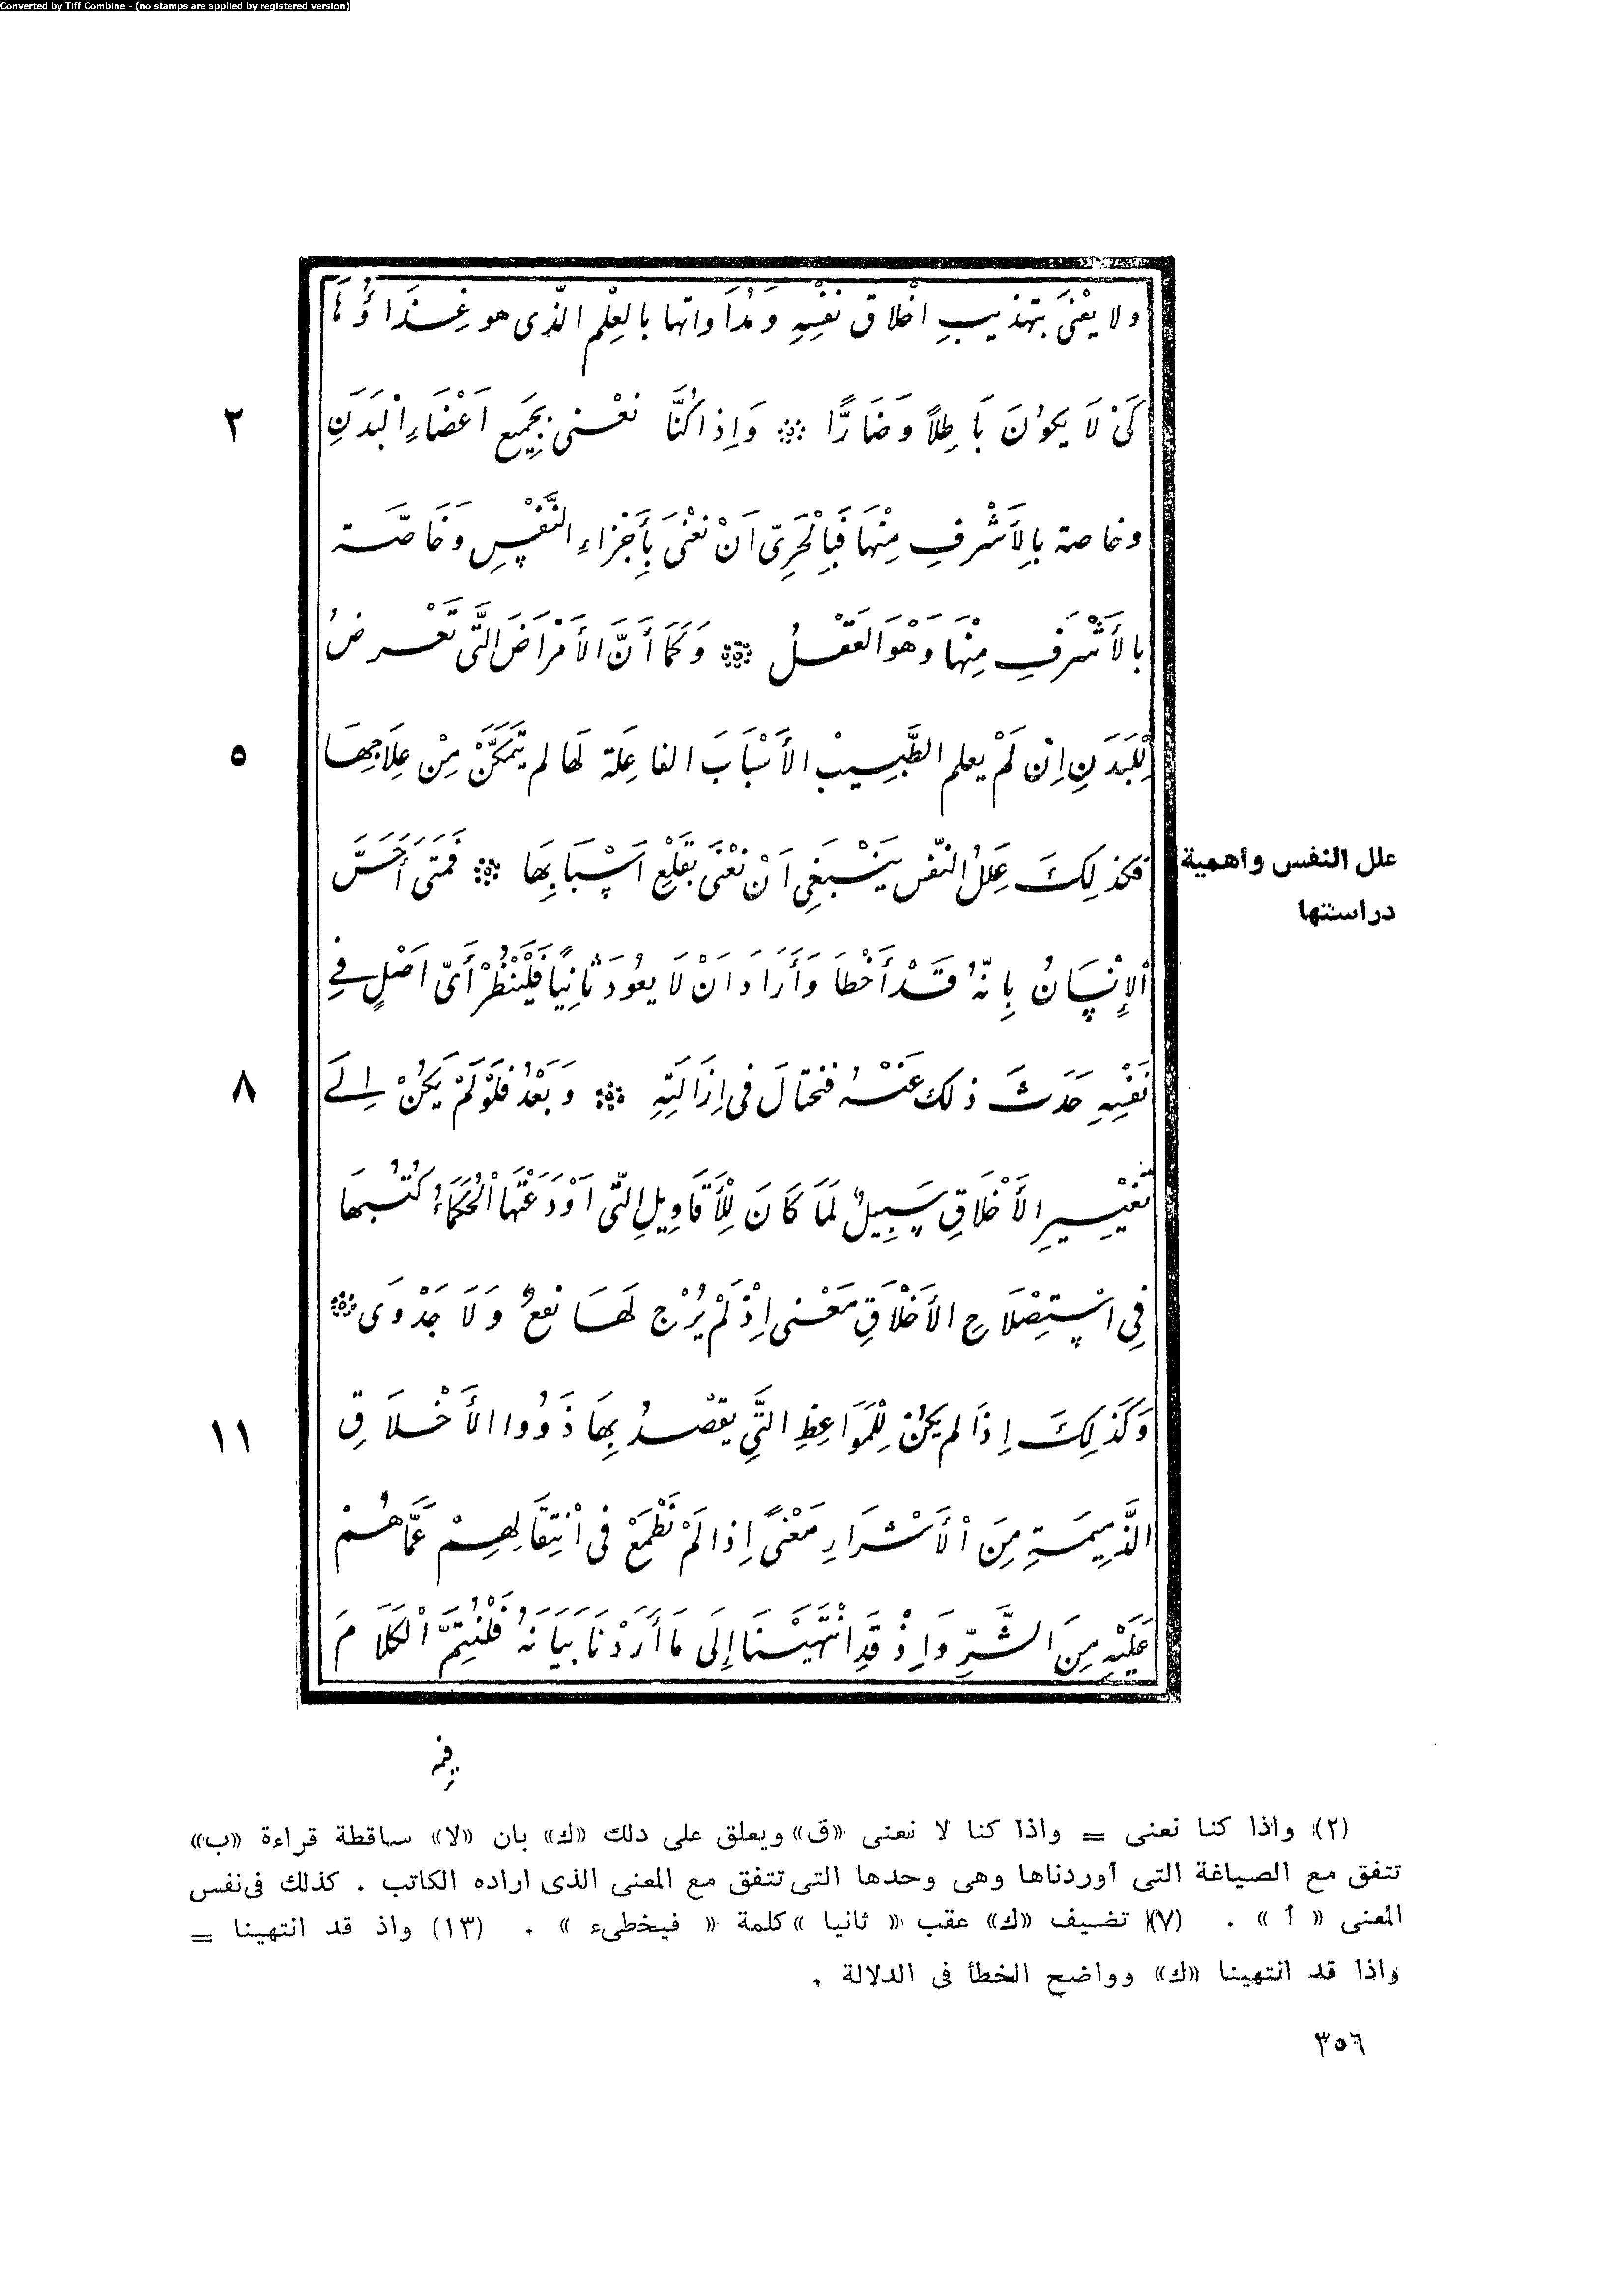 Converted by Tiff Combine - (no stamps are applied by registered version)
ولا يعْنىَ بتهذيبِ اخْلاق نفْسِهِ وَمُدَاواتها بالعِلْم الذّى هو غِذَاؤُهَا
٢
كَىْ لَا يَكوُنَ بَاطِلاً وَضَارًّا وَاِذا كُنَّا نعْنى بجَمِيع اَعْضَاءِ اْلبَدَنِ
وخاصة بالِأَشْرفِ مِنْهَا فَبِالْحَرِىّ اَنْ نعْنىَ بِأَجْزاءِ النَّفْسِ وَخَاصّة
بالأَشْرَفِ مِنْهَا وَهْوَ العَقْلُ وَكَمَا أَنَّ الأَمْرَاضَ التَّى تَعْرضُ
٥
لِلْبَدَنِ اِنْ لَمْ يعلم الطَّبِيبْ الأَسْبَابَ الفاعِلة لَها لم يَتَمَكَّنْ مِنْ عِلَاجِهَا
علل النفس وأهمية
دراستها
فكذلِكَ عِلَلُ النّفس يَنْبَغِى اَنْ نعْنَى بقَلْعِ اَسْبَابِهَا فَمَتَى أَحَسَّ
اْلإِنْسَانُ بِانّهُ قَدْ أَخْطَا وَأَرَادَ اَنْ لَا يعُودَ ثانِيًا فَلْيَنْظُرْ أَىّ اَصْلٍ فِى
٨
نَفْسِهِ حَدَثَ ذلك عَنْهُ فتحتالَ فى اِزَالَتِهِ وَبَعْدُ فلَوْ لَمْ يَكُنْ اِلَى
تغْيِيرِ الأَخْلَاقِ سَبِيلٌ لَمَا كَانَ لِلْأَقَاوِيلِ التّى اَوْدَعَتْهَا اْلحُكَمَاءُ كُتُبهَا
فِى اسْتِصْلَاحِ الأَخْلَاقِ مَعْنى اِذْ لَمْ يُرْجَ لَهَا نفعٌ وَلَا جَدْوَى
١١
وَكَذلِكَ اِذَا لم يَكُنْ لِلْمَوَاعِظِ التَّىِ يقْصدُ بِهَا ذَوُوا الأَخْلَاقِ
الذَّمِيمَةِ مِنَ اْلأَشْرَارِ مَعْنًى اِذا لَمْ نَطْمَعْ فى اْنتِقَالِهِمْ عَمَّا هُمْ
عَلَيْهِ مِنَ الشَّرِّ وَاِذْ قَدِ انْتَهَيْنَا إِلَى مَا أَرَدْنَا بَيَانَهُ فَلْنُتِمَّ اْلكَلَامَ
(٢) واذا كنا نعنى = واذا كنا لا نعنى «ق» ويعلق على دلك «ك» بان «لا» ساقطة قراءة «ب»
تتفق مع الصياغة التى أوردناها وهى وحدها التى تتفق مع المعنى الذى اراده الكاتب . كذلك فى نفس
المعنى « أ » . (٧) تضيف «ك» عقب « ثانيا » كلمة « فيخطىء » . (١٣) واذ قد انتهينا =
واذا قد انتهينا «ك» وواضح الخطأ فى الدلالة .
٣٥٦